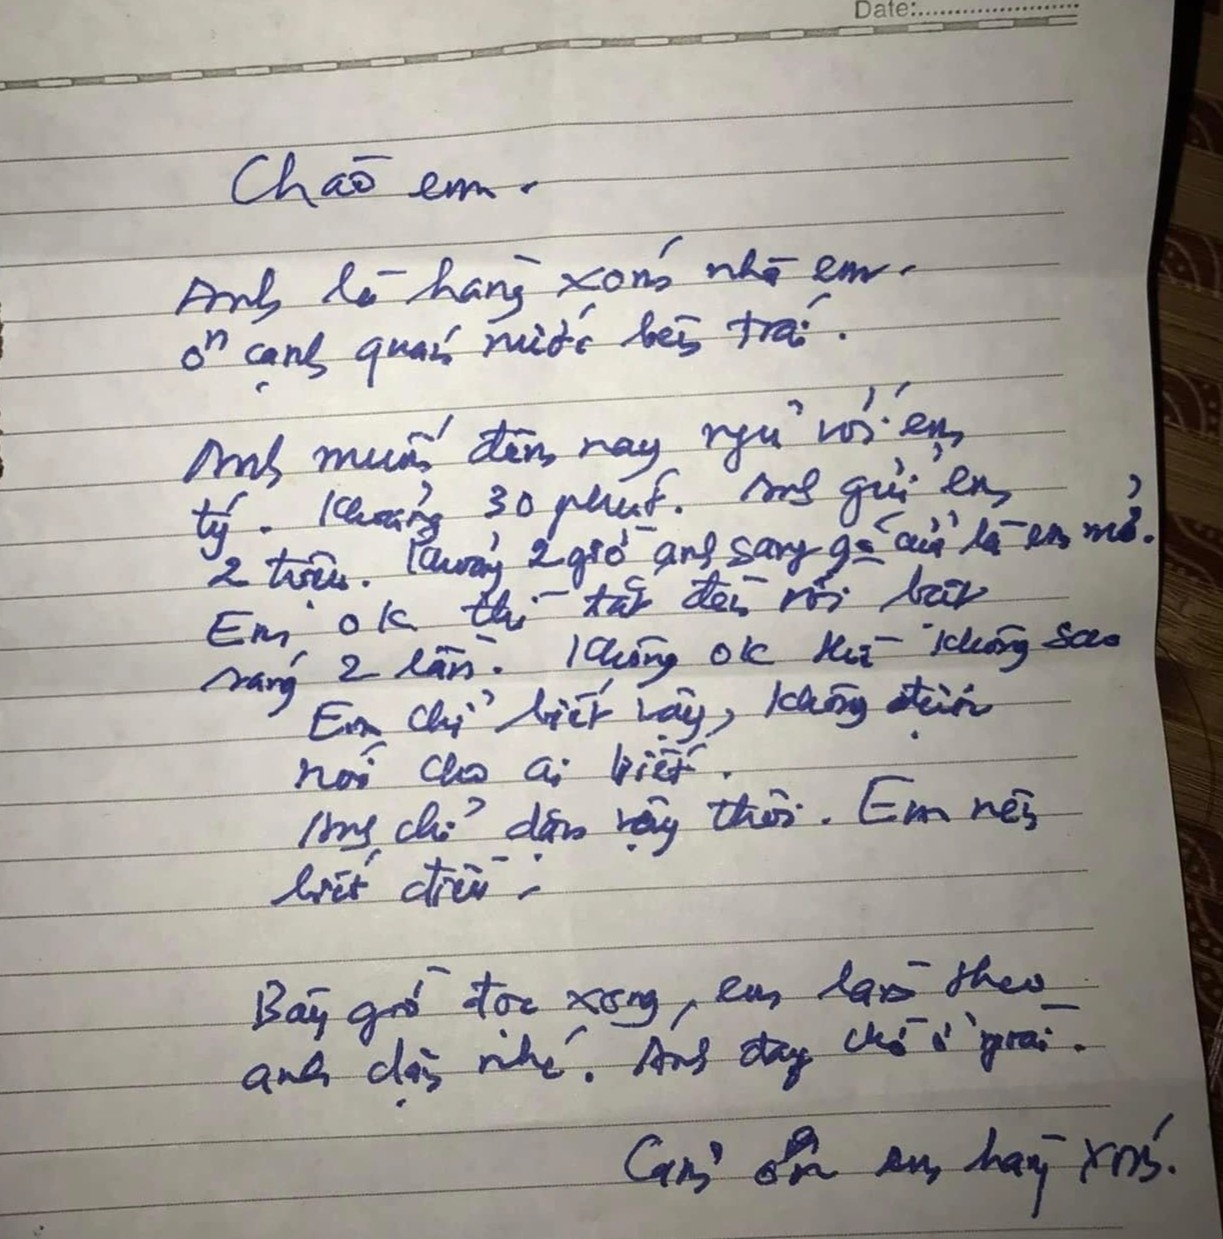 Date:
Chào em.
Anh là hàng xóm nhà em.
ở cạnh quán nước bên trái.
Anh muốn đêm nay ngủ với em
tý. Khoảng 30 phút. Anh gửi em
2 triệu. Khoảng 2 giờ anh sang gõ cửa là em mở.
Em ok thì tắt đèn rồi bật
sáng 2 lần. Không ok thì không sao
Em chỉ biết vậy, không được
nói cho ai biết.
Anh chỉ dặn vậy thôi. Em nên
biết điều.
Bây giờ đọc xong, em làm theo
anh dặn nhé. Anh đang chờ ở ngoài.
Cảm ơn em hàng xóm.